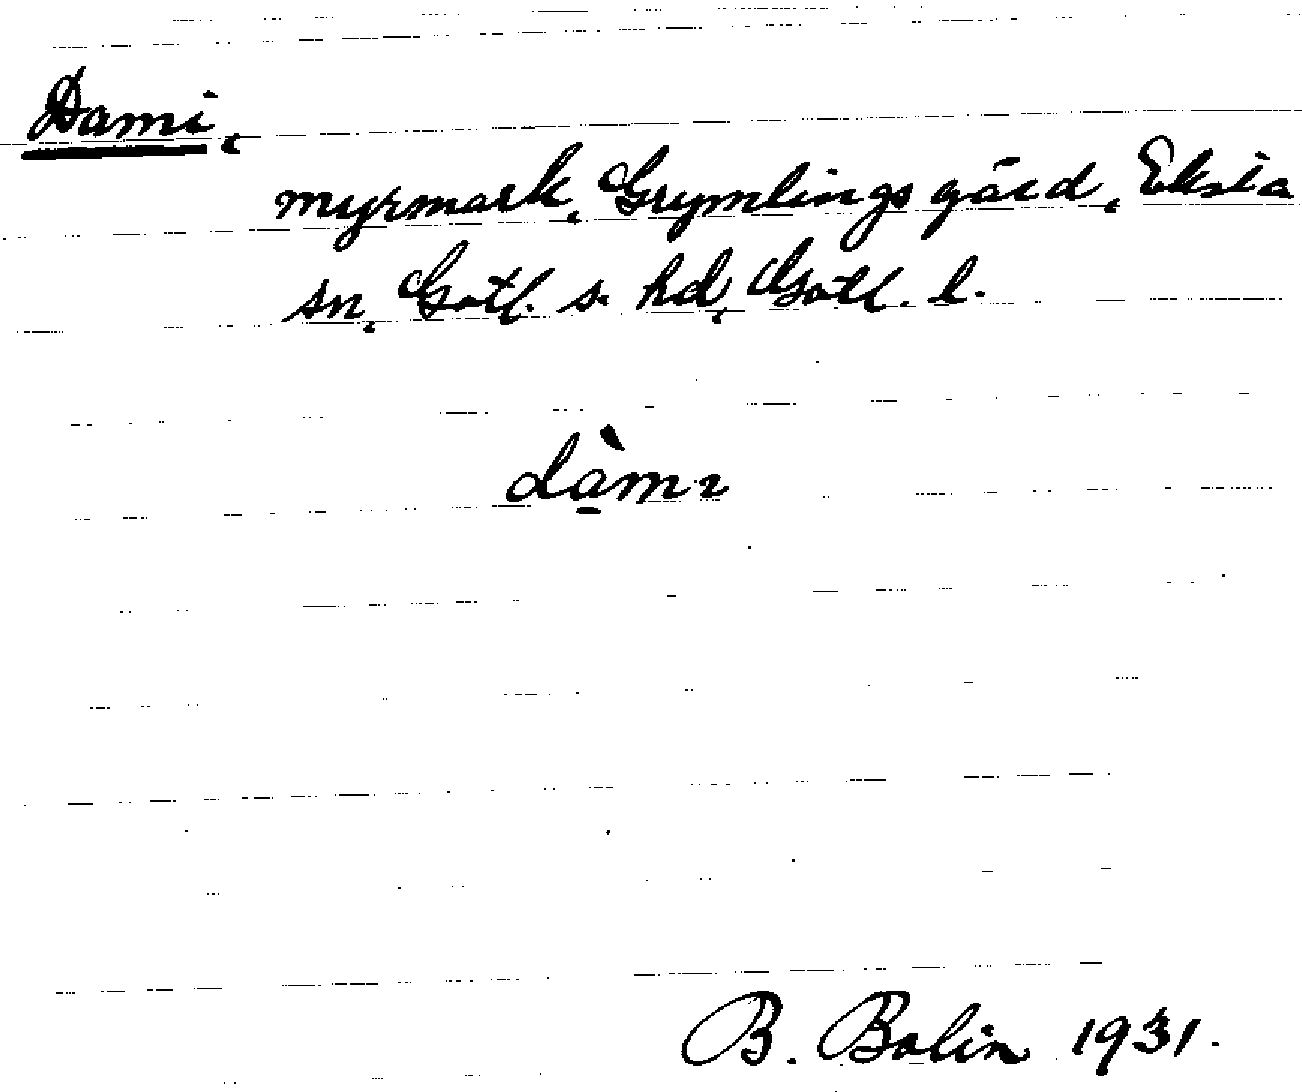 Dami,
myrmark, Grymlings gård, Eksta
sn, Gotl. s. hd, Gotl. l.
dà̱mı
B. Bolin 1931.